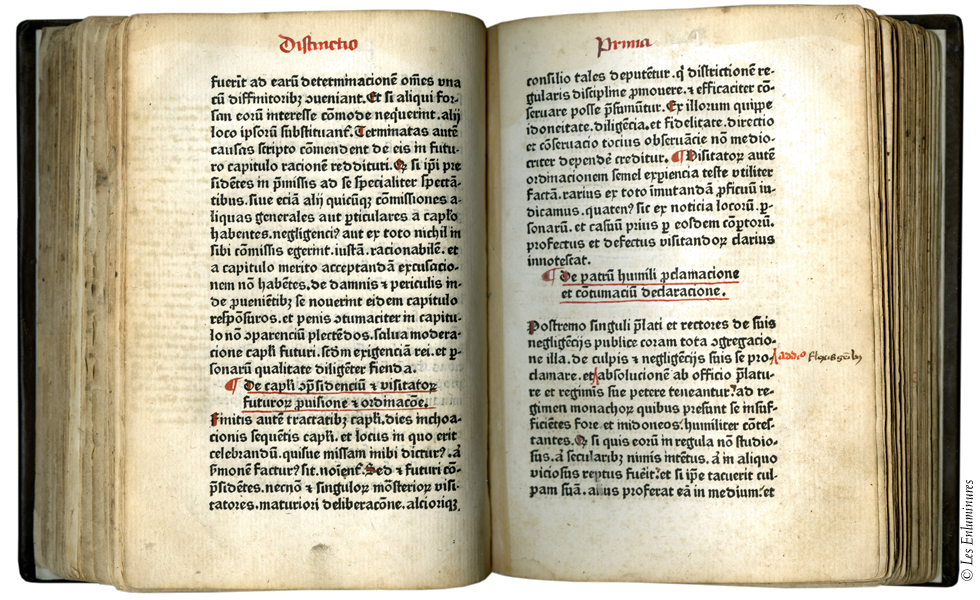 Distinctio
fuerīt ad earū determinacionē om̄es vna
cū diffinitoribꝫ ꝯueniant. Et si aliqui for-
san eorū interesse cōmode nequerint. alij
loco ipsorū substituant᷑. Terminatas autē
causas scripto cōmendent de eis in futu-
ro capitulo racionē reddituri. Qꝫ si ip̄i pre
sidētes in p̄missis ad se specialiter spectā-
tibus. siue eciā alij quicūqꝫ cōmissiones a-
liquas generales aut ꝑticulares a capl̓o
habentes. negligenciꝰ aut ex toto nichil in
sibi cōmissis egerint. iustā. racionabilē. et
a capitulo merito acceptandā excusacio-
nem nō habētes. de damnis ⁊ periculis in-
de ꝓueniētibꝫ se nouerint eidem capitulo
respōsuros. et penis ꝯtumaciter in capitu-
lo nō ꝯparenciū plectēdos. salua modera-
cione capl̓i futuri. scd̄m exigenciā rei. et ꝑ-
sonarū qualitate diligēter fienda.
¶ De capl̓i ꝯp̄sidenciū ⁊ visitatoꝝ
futuroꝝ ꝓuisione ⁊ ordinacōe.
Finitis autē tractatibꝫ capl̓i. dies inchoa-
cionis sequētis capl̓i. et locus in quo erit
celebrandū. quisue missam inibi dicturꝰ. aꝉ
ẜmonē facturꝰ sit. noīent᷑. Sed ⁊ futuri cō-
p̄sidētes. necnō ⁊ singuloꝝ mōsterioꝝ visi-
tatores. maturiori deliberacōne. alcioriqꝫ
Prima
consilio tales deputētur. qꝉ districtionē re-
gularis discipline ꝓmouere. ⁊ efficaciter cō-
seruare posse p̄sumūtur. Ex illorum quippe
idoneitate. diligēcia. et fidelitate. directio
et cōseruacio tocius obseruācie nō medio-
criter dependē creditur. ¶ Visitatoꝝ autē
ordinacionem semel expiencia teste vtiliter
factā. rarius ex toto īmutandā ꝓficuū iu-
dicamus. quatenꝰ sic ex noticia locorū. ꝑ-
sonarū. et casuū prius ꝑ eosdem cōꝑtorū.
profectus et defectus visitandoꝝ clarius
innotescat.
¶ De patrū humili ꝓclamacione
et cōtumaciū declaracione.
Postremo singuli p̄lati et rectores de suis
negligēcijs publice coram tota ꝯgregacio-
ne illa. de culpis ⁊ negligēcijs suis se pro-
clamare. et absolucionē ab officio p̄latu-
re et regimis sue petere teneantur. ad re-
gimen monachoꝝ quibus presunt se insuf-
ficiētes fore. et midoneos. humiliter cōtes-
tantes. Qꝫ si quis eorū in regula nō studio-
sus. aꝉ secularibꝫ nimis intētus. aꝉ in aliquo
viciosus reptus fueīt. et si ip̄e tacuerit cul-
pam suā. alius proferat eā in medium. et
© Les Enluminures